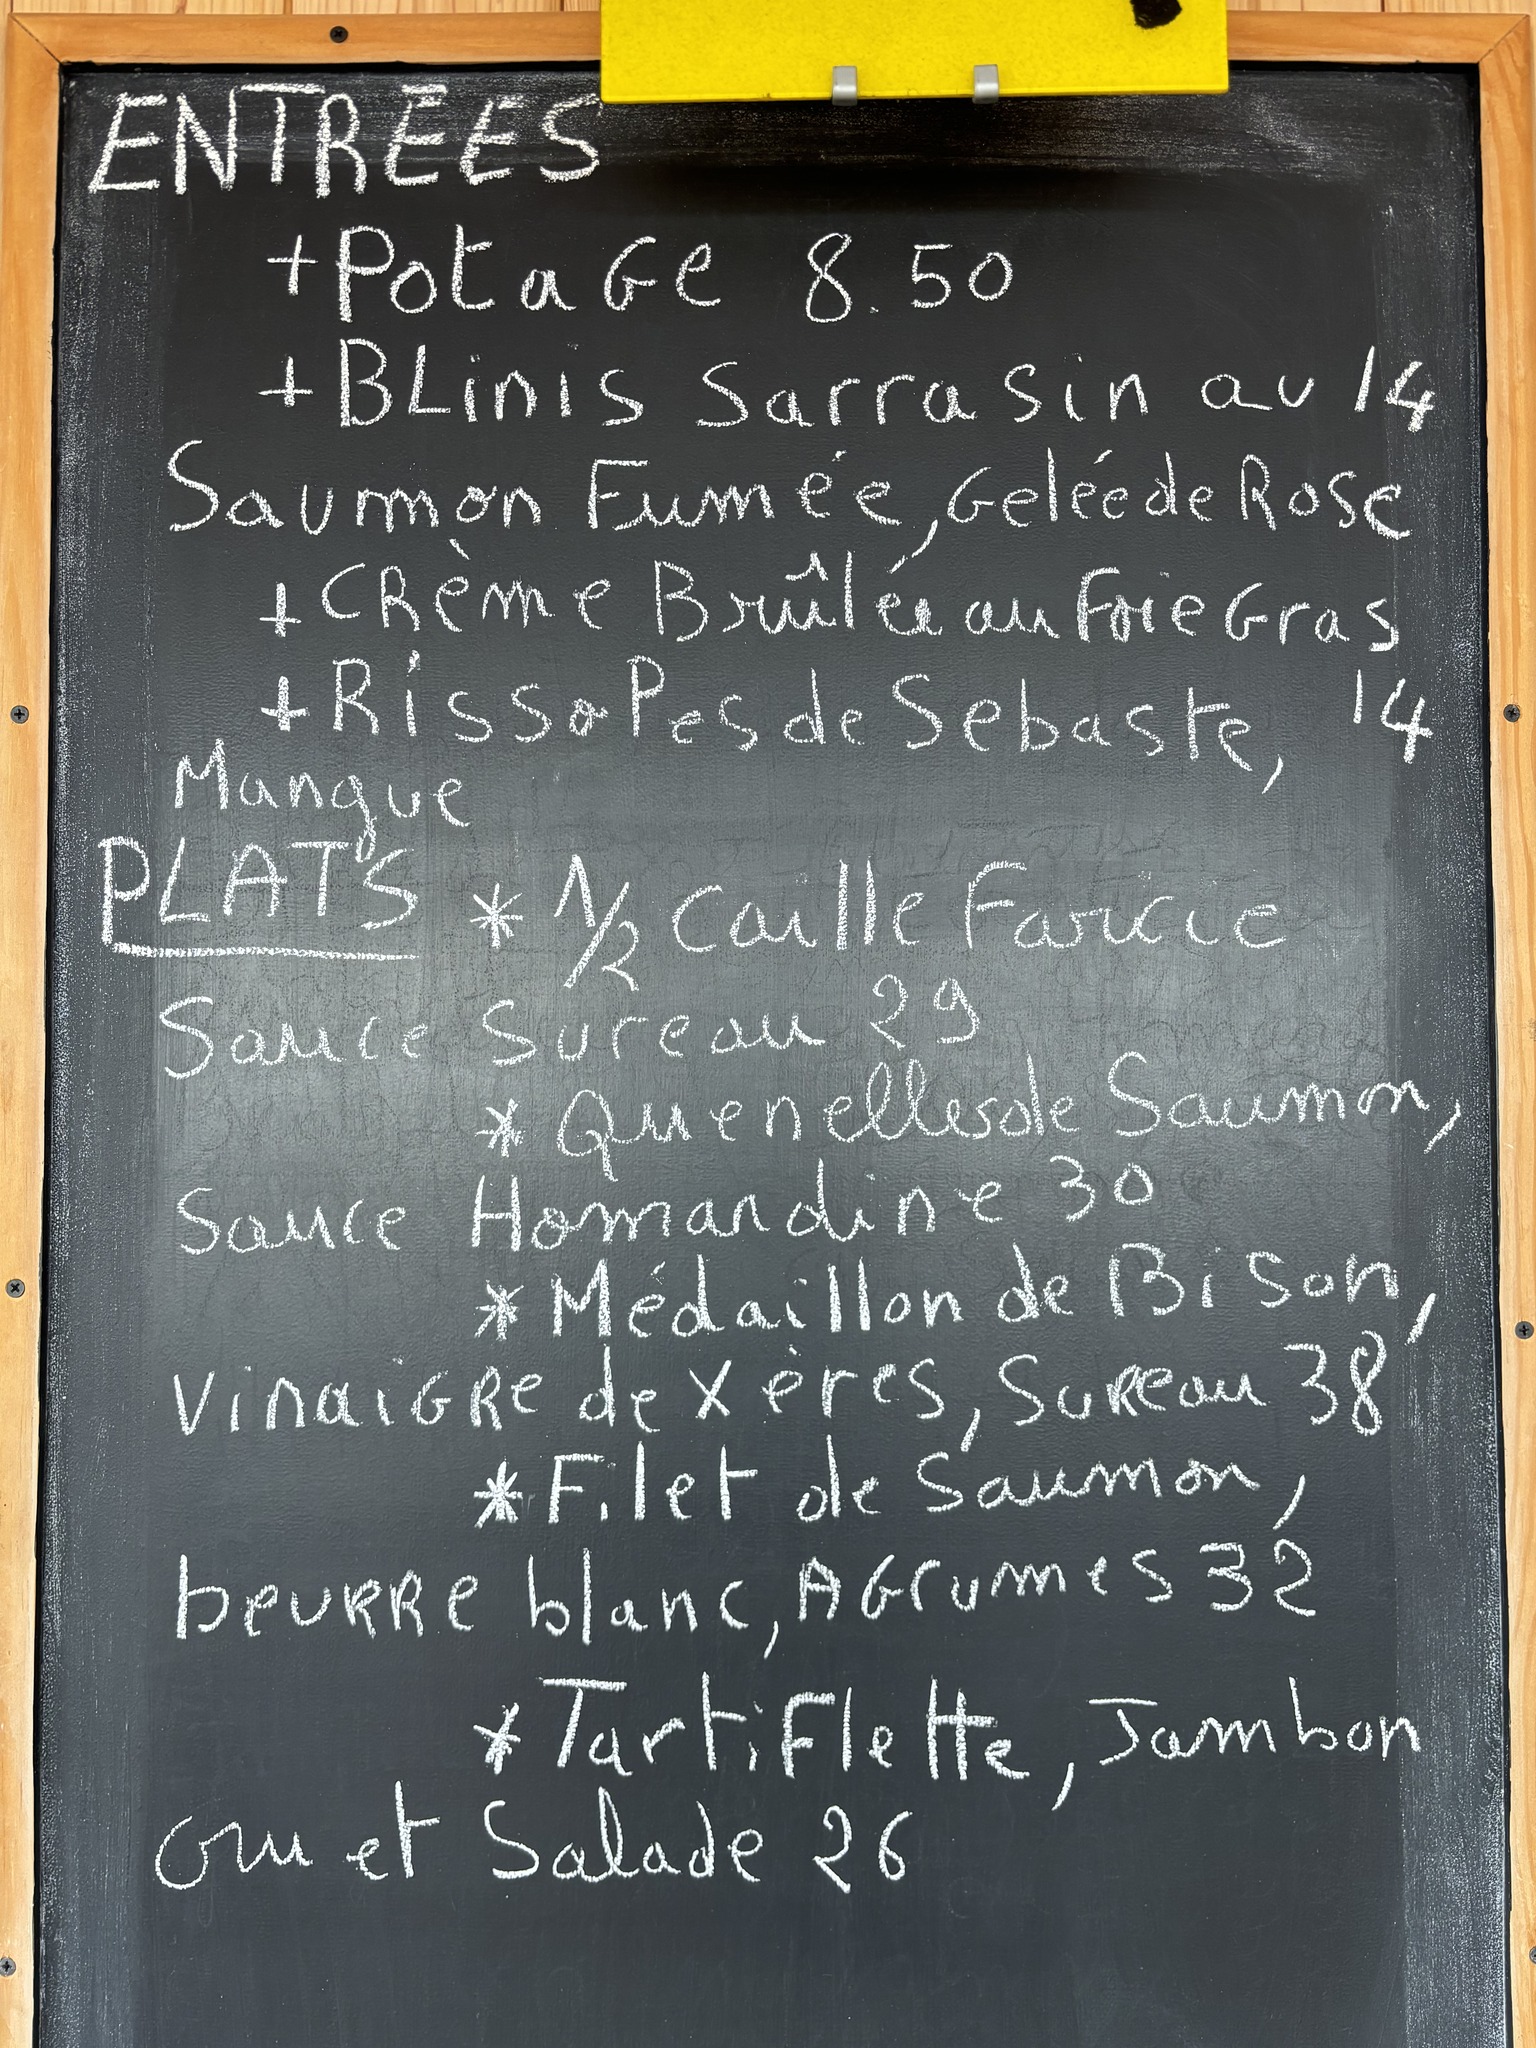 ENTRÉES
+ Potage 8.50
+ Blinis Sarrasin au 14
Saumon Fumée, Gelée de Rose
+ Crème Brûlée au Foie Gras
+ Rissoles de Sebaste, 14
Mangue
PLATS * 1/2 Caille Farcie
Sauce Sureau 29
* Quenelles de Saumon,
Sauce Homardine 30
* Médaillon de Bison,
Vinaigre de Xères, Sureau 38
* Filet de Saumon,
beurre blanc, Agrumes 32
* Tartiflette, Jambon
ou et Salade 26